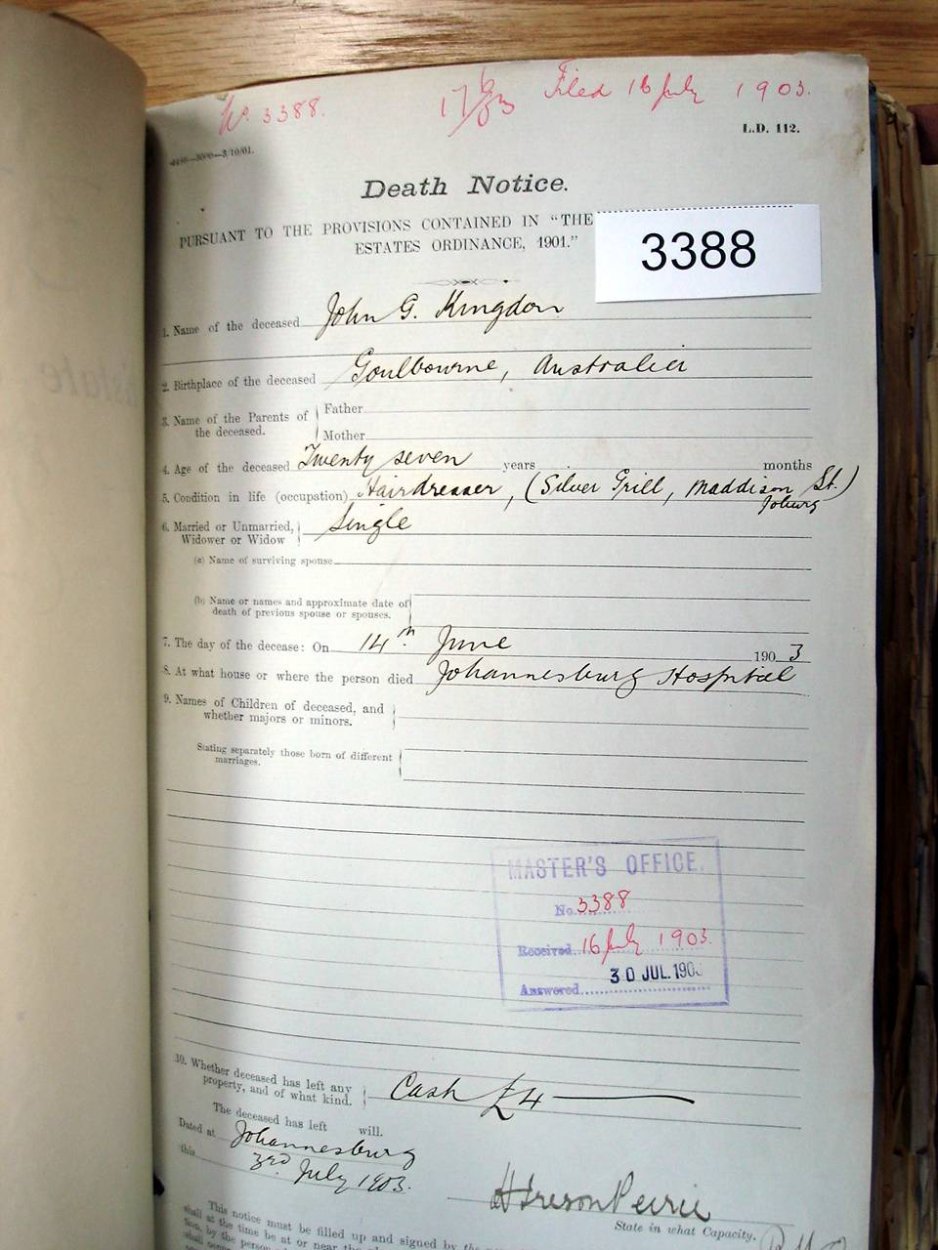 No. 3388.
17/6/03
Filed 16 July 1903.
L.D. 112.
Death Notice.
PURSUANT TO THE PROVISIONS CONTAINED IN "THE
ESTATES ORDINANCE, 1901."
3388
1. Name of the deceased John G. Kingdon
2. Birthplace of the deceased Goulbourne, Australia
3. Name of the Parents of the deceased. Father
Mother
4. Age of the deceased Twenty seven years months
5. Condition in life (occupation) Hairdresser, (Silver Grill, Maddison St.)
Joburg
6. Married or Unmarried, Widower or Widow Single
(a) Name of surviving spouse
(b) Name or names and approximate date of
death of previous spouse or spouses.
7. The day of the decease: On 14th June 1903
8. At what house or where the person died Johannesburg Hospital
9. Names of Children of deceased, and
whether majors or minors.
Stating separately those born of different
marriages.
MASTER'S OFFICE.
No. 3388
Received 16 July 1903.
30 JUL. 190
Answered
10. Whether deceased has left any
property, and of what kind. Cash £4
The deceased has left will.
Dated at Johannesburg
this 3rd July 1903.
State in what Capacity.
This notice must be filled up and signed by the
shall at the time be at or near the
by the person